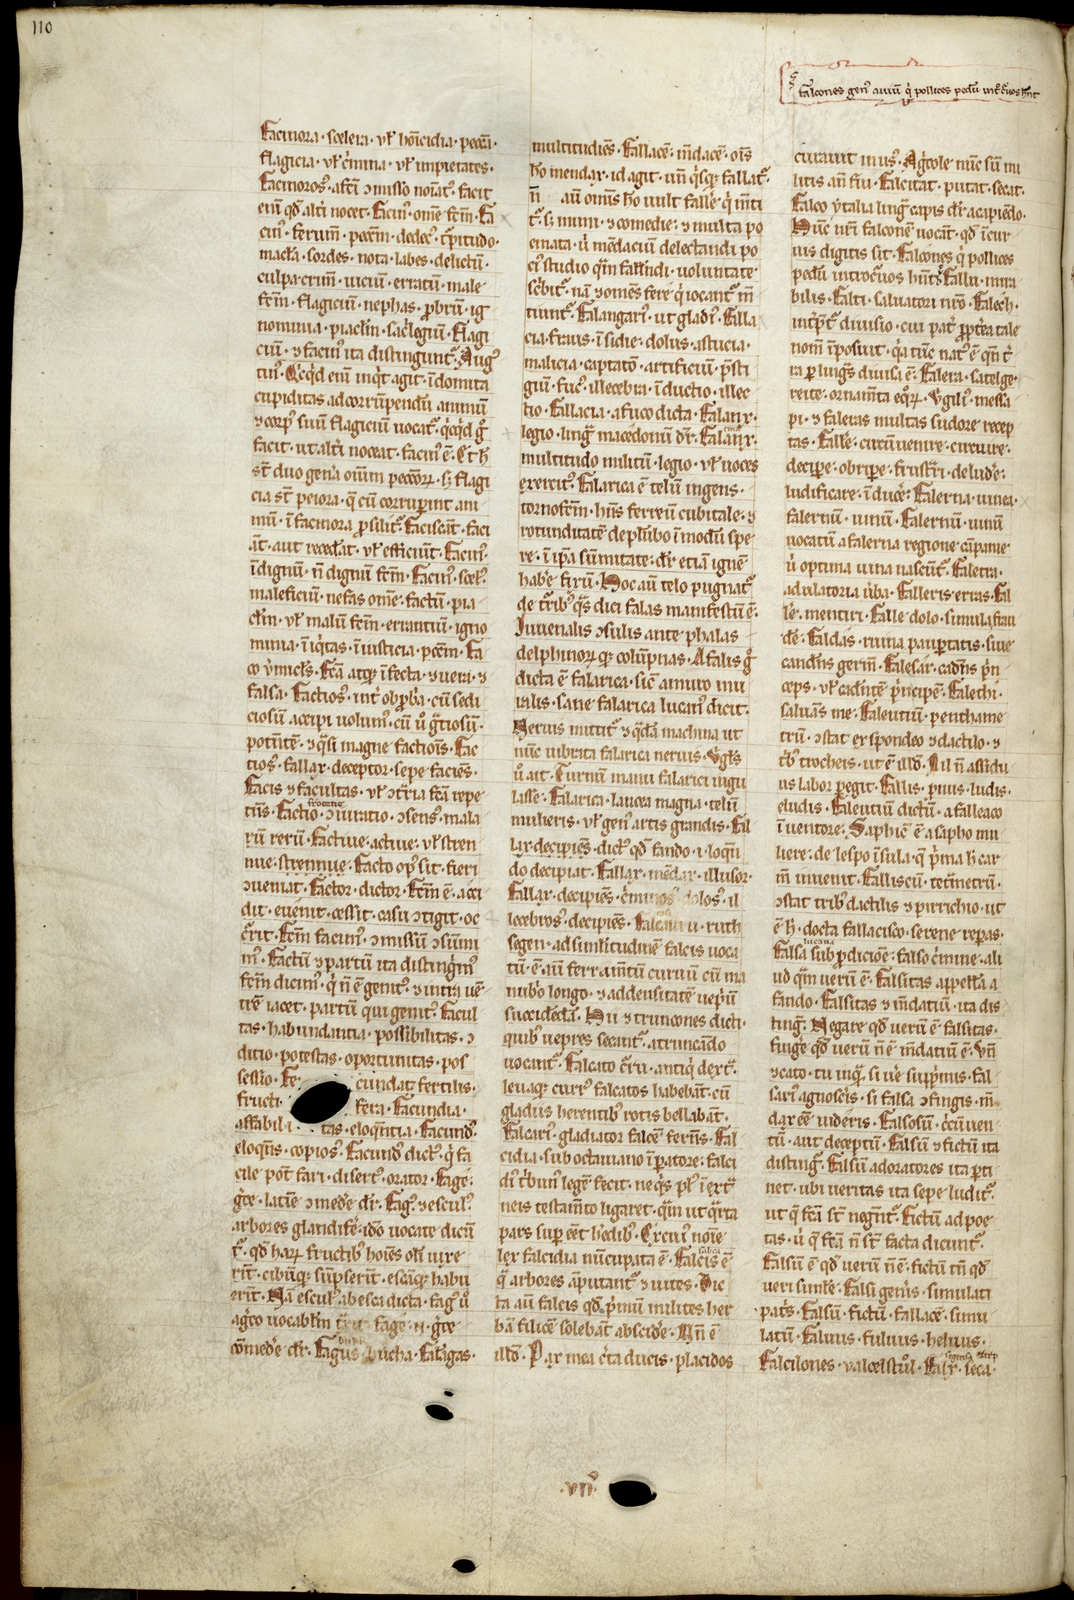 110
falcones gen᷒ auiū q̇ pollices pedū int̄c̓uos hn̄t
Facinora · scelera · ul̄ homicidia · peccā ·
flagicia · ul̄ c̓mina · ul̄ impietates ·
eni᷒ qd̄ alt̓i nocet · Facin᷒ · om̄e fc̄m · Fa
cin᷒ · ferum · pecc̄m · dedec᷒ · t̓pitudo ·
macl̄a · sordes · nota · labes · delictū ·
culpa · crim̄ · uiciū · erratū · male
fc̄m · flagiciū · nephas · ꝓbrū · ig
nominia · piacl̄m · sac̓legiū · Flagi
ciū · ⁊ facin᷒ ita distingunt᷑ · Aug᷒
tin᷒ · Qc̓qd eni᷒ inqt · agit · īdomita
cupiditas ad corrūpendū animū
⁊ corp᷒ suū flagiciū uocat᷑ · qcqd g̓
facit · ut alt̓i noceat · facin᷒ ē · Et h̄
st̄ duo gen̓a oīum pecc̄oꝝ · sꝫ flagi
cia st̄ peiora · q̄ cū corrup̄int ani
mū · ī facinora ꝓsilit᷑ · Faciscāt · faci
āt · aut recedāt · ul̄ efficiūt · Facin᷒ ·
īdignū · n̄ dignū fc̄m · Facin᷒ · scel᷒ ·
maleficiū · nefas om̄e · factū · pia
cl̄m · ul̄ malū fc̄m · errantiū · igno
minia · īiq̓tas · īiusticia · pecc̄m · Fa
falsa · Factios᷒ · int̓ obꝓbria · cū sedi
ciosū accipi uolum᷒ · cū ū g̓tiosū ·
potētē · ⁊ q̓si magne factiōis · Fac
tios᷒ · fallax · deceptor · sepe faciēs ·
Facis ⁊ facultas · ul̄ ɔt̓ria fc̄a repe
tēs · Factio · ɔiuratio · ɔsens᷒ · mala
rū rerū · Factiue · actiue · ul̄ stren
nue · strennue · Facto op᷒ sit · fieri
ɔueniat · Factor · dictor · Fc̄m ē · acci
dit · euenit · cessit · casu ɔtigit · oc
c̓rit · Fc̄m facim᷒ · ɔmissū ɔsūmi
m᷒ · Factū ⁊ partū ita disting̓m᷒
fc̄m dicim᷒ · q̓ n̄ ē genit᷒ · ⁊ intra uē
tre iacet · partū qui genit᷒ · Facul
tas · habundantia · possibilitas · ɔ
ditio · potestas · oportunitas · pos
sessio · Fe cundaꝫ fertilis ·
fructi fera · Facundia ·
affabili tas · eloq̄ntia · Facund᷒ ·
eloq̄ns · copios᷒ · Facund᷒ dict᷒ · q̓ fa
cile pōt fari · disert᷒ · orator · Fage ·
g̓ce · latine ɔmede dr̄ · Fag᷒ ⁊ escul᷒ ·
arbores glandifere · ido uocate dicū
t᷑ · qd̄ haꝝ fructib᷒ hoīes olī uixe
rūt · cibūqꝫ sūpserūt · escāqꝫ habu
erūt · Nā escul᷒ ab esca dicta · fag᷒ ū
ɔmedere dr̄ · Fagus bucha · Falagas ·
multitudiēs · Fallacē · mēdacē · ois
ho mendax · id agit · un̄ q̓sqꝫ fallat᷑ ·
n̄ aū omīs ho uult falle q̓ mēti
t᷑ · sꝫ mimi · ⁊ comedie · ⁊ multa po
emata · ū mendaciū delectandi po
ci᷒ studio q̓m fallendi · uoluntate
sc̓bit᷑ · nā ⁊ omēs fere q̓ iocant᷑ mē
tiunt᷑ · Falangari᷒ · ut gladi᷒ · Falla
cia · fraus · īsidie · dolus · astucia ·
malicia · captatō · artificiū · p̄sti
giū · fuc᷒ · illecebra · īductio · illec
tio · Fallacia · a fuco dicta · Falanx ·
legio · ling̓ macedonū dr̄ · Falanx ·
multitudo militū · legio · ul̄ uoces
exercit᷒ · Falarica ē telū ingens ·
torno fc̄m · hn̄s ferreū cubitale · ⁊
rotunditatē de plūbo ī modū spe
re · ī ip̄a sūmitate · dr̄ etiā ignē
habe fixū · Hoc aū telo pugnat᷑
de t̓rib᷒ q̄s dici falas manifestū ē ·
Iuuenalis ɔsulis ante phalas
delphinoꝝ qꝫ colūpnas · A falis g̓
dicta ē falarica · sic̄ a muro mu
ralis · sane falarica lucan᷒ dicit ·
Neruis mittit᷑ ⁊ q̄dā machina ut
nūc uibrata falarica neruis · Vgl̄s
ū ait · Turnū manu falarici iugu
lasse · Falarica · lancea magna · telū
mulieris · ul̄ gen᷒ artis grandis · Fal
lax · decipiēs · dict᷒ qd̄ fando · i · loq̄n
do decipiat · Fallax · mēdax · illusor ·
iocebros᷒ · decipiēs · Falcarū u · ruth
segen · ad similitudinē falcis uoca
tū · ē aū ferramētū curuū cū ma
nubio longo · ⁊ ad densitatē ueprū
succidendā · Hii ⁊ truncones dicti ·
quib᷒ uepres secant᷑ · a truncādo
uocant᷑ · Falcato c̓ru · antiq̓ dext᷑ ·
leuaqꝫ curr᷒ falcatos habebāt · cū
gladiis herentib᷒ rotis bellabāt ·
Falcari᷒ · gladiator falcē ferēs · Fal
cidia · sub octauiano īperatore · falci
di᷒ t̓bun᷒ legē fecit · ne q̓s pl᷒ ī ext̓
neis testamēto ligaret · q̓m ut q̓rta
pars sup eēt hedib᷒ · Ex cui᷒ noīe
lex falcidia nūcupata ē · Falcis ē
q̄ arbores āputant᷑ ⁊ uites · Dic
ta aū falcis qd̄ p̓mū milites her
bā filicē solebāt abscide · Vn̄ ē
illd̄ · Pax mea c̓ta ducis · placidos
curauit in us᷒ · Ag̓cole nūc sū mi
litis an̄ fui · Falcitat · putat · secat ·
Falco ytalia ling̓ capis dr̄ · a capiēdo ·
Hūc nr̄i falconē uocāt · qd̄ īcur
uis digitis sit · Falcones q̓ pollices
pedū introc̓uos hn̄t · Fallu · mira
bilis · Falti · saluatori nr̄o · Falech ·
int̓p̄t᷑ diuisio · cui pat̓ ꝓpt̓ea tale
nom̄ īposuit · q̓a tūc nat᷒ ē q̄n t̓
ra ꝑ ling̓s diuisa ē · Falera · satelge
reite · ornam̄ta eq̓oꝝ · Vgili᷒ · messa
pi · ⁊ faleras multas sudore recep
tas · Falle · circūuenire · circuire ·
decipe · obripe · frustri · delude ·
ludificare · īduce · Falerna · uinea ·
falernū · uinū · Falernū · uinū
uocatū a falerna regione cāpanie
ū optima uina nascūt᷑ · Faleria ·
adulatoria ūba · Falleris · erras · Fal
le · mentiri · Falle dolo · simula frau
de · Faldas · ruina paupertatis · siue
candēs germ̄ · Falesar · cadēs p̓n
ceps · ul̄ cadētē p̓ncipē · Falethi ·
saluās me · Faleutiū · penthame
trū · ɔstat ex spondeo ⁊ dactilo · ⁊
t̓b᷒ trocheis · ut ē illd̄ · Nil n̄ assidu
us labor peregit · Fallis · piuus · ludis ·
eludis · Faleutiū dictū · a falleaco
īuentore · Saphic̄ ē a sapho mu
liere · de lespo īsula · q̄ p̓ma h̄ car
m̄ inuenit · Falliscū · tetrāmetrū ·
ɔstat trib᷒ dactilis ⁊ pirrichio · ut
ē h̄ · docta fallacisco · serene repas ·
Falsa sub ꝓdicioē · falso c̓mine · ali
ud q̓m uerū ē · Falsitas appella a
fando · Falsitas ⁊ mēdatiū · ita dis
ting̓ · Negare qd̄ uerū ē · falsitas ·
finge qd̄ uerū n̄ ē mēdatiū ē · Vn̄
⁊ cato · tu inq̓ · si ue suppmis · fal
sari᷒ agnoscis · si falsa ɔfingis · mē
dax eē uideris · Falsosū · c̓cūuen
tū · aut deceptū · Falsū ⁊ fictū ita
disting̓ · Falsū adoratores ita perti
net · ubi ueritas ita sepe ludit᷑ ·
ut q̄ fc̄a st̄ negēt᷑ · Fictū ad poe
tas · ū q̄ fc̄a n̄ st̄ facta dicunt᷑ ·
Falsū ē qd̄ uerū n̄ ē · fictū tn̄ qd̄
ueri simile · Falsi generis · simulati
pat̓s · Falsū · fictū · fallacē · simu
latiū · Faluus · fuluus · heluus ·
Falcilones · ualcelstol · Falx · seca ·
· VII᷒ ·